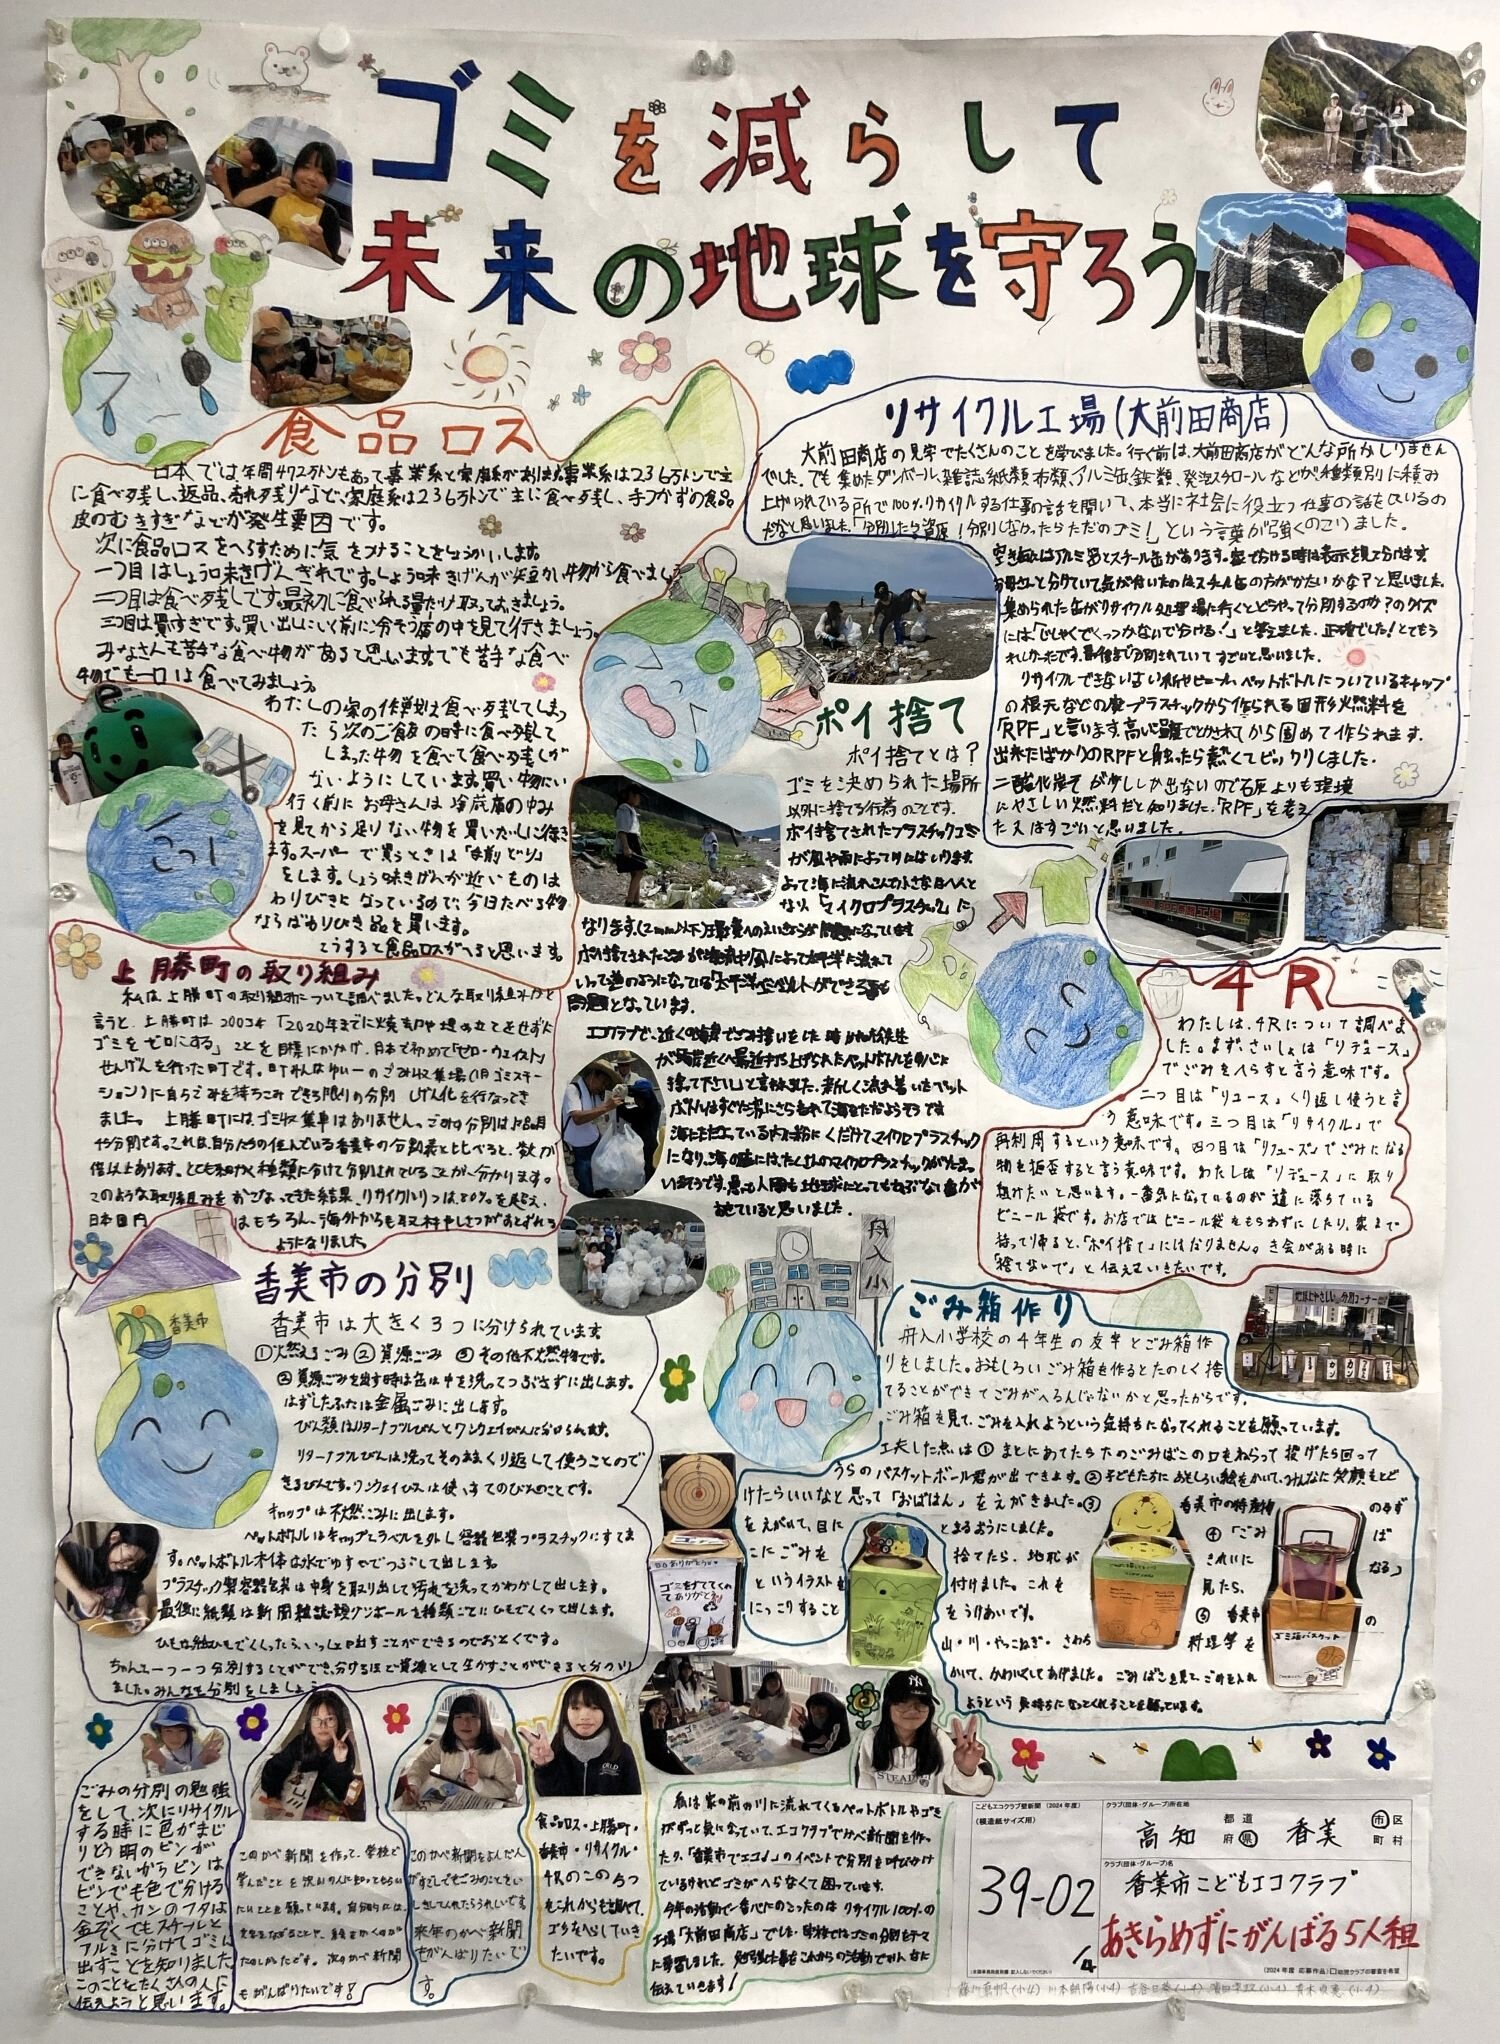 ゴミを減らして
未来の地球を守ろう
食品ロス
日本では年間472万トンもあって事業系と家庭系があり事業系は236万トンで主
に食べ残し、返品、売れ残りなど、家庭系は236万トンで主に食べ残し、手つかずの食品
皮のむきすぎなどが発生要因です。
次に食品ロスをへらすために気をつけることをしょうかいします。
一つ目はしょう味きげんぎれです。しょう味きげんが短かい物から食べましょう
二つ目は食べ残しです。最初に食べられる量だけ取っておきましょう。
三つ目は買すぎです。買い出しにいく前に冷ぞう庫の中を見て行きましょう。
みなさんも苦手な食べ物があると思います。でも苦手な食べ
物でも一口は食べてみましょう。
わたしの家の作戦は食べ残してしまっ
たら次のご飯の時に食べ残して
しまった物を食べて食べ残しが
ないようにしています。買い物にい
行く前にお母さんは冷蔵庫の中み
を見てから足りない物を買いたしに行き
ます。スーパーで買うときは「手前どり」
をします。しょう味きげんが近いものは
わりびきになっているので、今日たべる物
ならばわりびき品を買います。
そうすると食品ロスがへると思います。
リサイクル工場(大前田商店)
大前田商店の見学でたくさんのことを学びました。行く前は、大前田商店がどんな所かしりません
でした。でも集めたダンボール、雑誌、紙類、布類、アルミ缶、鉄類、発泡スチロールなどが種類別に積み
上げられている所で100%リサイクルする仕事の話を聞いて、本当に社会に役立つ仕事の話をているの
だなと思いました。「分別したら資原!分別しなかったらただのゴミ!」という言葉が強くのこりました。
空き缶にはアルミ缶とスチール缶があります。家で分ける時は表示を見て分けます。
お母さんと分けていて気が付いたのはスチール缶の方がかたいかな?と思いました。
集められた缶がリサイクル処理場に行くとどうやって分別するのか?のクイズ
には「じしゃくでくっつかないで分ける!」と答えました。正確でした!とてもう
れしかったです。最後まで分別されていてすごいと思いました。
リサイクルできない古い紙やビニール、ペットボトルについているキャップ
の根元などの廃プラスチックから作られる固形火燃料を
「RPF」と言います。高い温度でとかされてから固めて作られます。
出来たばかりのRPFを触ったら熱くてビックリしました。
二酸化炭そが少ししか出ないので石炭よりも環境
にやさしい燃料だと知りました。「RPF」を考え
た人はすごいと思いました。
ポイ捨て
ポイ捨てとは?
ゴミを決められた場所
以外に捨てる行為のことです。
ポイ捨てされたプラスチックゴミ
が風や雨によって川にはいります
よって海に流れこんで小さな目へんと
なり「マイクロプラスチック」に
なります。(2mm以下)環境へのえいきょうが問題になっています
ポイ捨てされたごみが海流や風によって太平洋に流れて
いって
問題となっています。
エコクラブで、近くの海岸でごみ拾いをした時
ボトルはすぐた
海にただよっている内に粉にくだけてマイクロプラスチック
になり、海の底には、たくさんのマイクロプラスチックがたまって
いるそうです。
出ていると思いました。
上勝町の取り組み
私は上勝町の取り組みについて調べました。どんな取り組みかと
言うと、上勝町は2003年「2020年までに焼却や埋め立てをせずに
ゴミをゼロにする」ことを目標にかかげ、日本で初めて「ゼロ・ウェイスト」
せんげんを行った町です。町みんなゆい一のごみ収集場(日比ゴミステー
ション)に自らごみを持ちこみできる限りの分別、しげん化を行なってき
ました。上勝町にはゴミ収集車はありません。ごみの分別は13品目
45分別です。これは、自分たちの住んでいる香美市の分別表と比べると、数が
倍以上あります。とても細かく種類に分けて分別されていることが、分かります。
このような取り組みをおこなってきた結果、リサイクルりつは80%を超え、
日本国内はもちろん、海外からも取材やしさつがおとずれる
ようになりました。
4R
わたしは、4Rについて調べま
した。まず、さいしょは「リデュース」
でごみをへらすと言う意味です。
二つ目は「リユース」くり返し使うと言
う意味です。三つ目は「リサイクル」で
再利用するという意味です。四つ目は「リフューズ」でごみになる
物を拒否すると言う意味です。わたしは「リデュース」に取り
組みたいと思います。一番気になっているのが道に落ちている
ビニール袋です。お店ではビニール袋をもらわずにしたり、家まで
持って帰ると、「ポイ捨て」にはなりません。き会がある時に
「捨てないで」と伝えていきたいです。
香美市
香美市の分別
香美市は大きく3つに分けられています。
①火燃えるごみ②資源ごみ③その他不燃物です。
②資源ごみを出す時は缶は中を洗ってつぶさずに出します。
はずしたふたは金属ごみに出します。
びん類はリターナブルびんとワンウェイびんに分けられます。
リターナブルびんは洗ってそのままくり返して使うことので
きるびんです。ワンウェイびんは使いすてのびんのことです。
キャップは不燃ごみに出します。
ペットボトルはキャップとラベルを外し容器包装プラスチックにすてま
す。ペットボトル本体は水でゆすいでつぶして出します。
プラスチック製容器包装は中身を取り出して汚れを洗ってかわかして出します。
最後に紙類は新聞、雑誌、段ダンボールを種類ごとにひもでくくって出します。
ひもは紙ひもでくくったら、いっしょに出すことができるのでおとくです。
ちゃんと一つ一つ分別することができ、分けるほど資源として生かすことができると分かり
ました。みんなも分別をしましょう
舟入小
ごみ箱作り
舟入小学校の4年生の友半とごみ箱作
りをしました。おもしろいごみ箱を作るとたのしく捨
てることができてごみがへるんじゃないかと思ったからです。
ごみ箱を見て、ごみを入れようという気持ちになってくれることを願っています。
工夫した点は①まとにあてたらたのごみばこの口をねらって投げたら回って
うらのバスケットボール君が出できます。②子どもたちにおもしろい絵をかいて、みんなに笑顔をとど
けたらいいなと思って「おばけん」をえがきました。③香美市の特産物のゆず
をえがいて、目にとまるようにしました。④「ごみば
こにごみを捨てたら、地球がきれいになる」
というイラストを付けました。これを見たら、
にっこりすることをうけあいです。⑤香美市の
山・川・やっこねぎ・さわち料理等を
かいて、かわいくしてあげました。ごみばこを見て、ごみを入れ
ようという気持ちになってくれることを願っています。
ゴミをすててくれ
てありがとう
ゴミ箱バスケット
ごみの分別の勉強
をして、次にリサイクル
する時に色がまじ
りとう明のビンが
できないからビンは
ビンでも色で分ける
ことや、カンのフタは
金ぞくでもスチールと
アルミに分けてゴミに
出すことを知りました。
このことをたくさんの人に
伝えようと思います。
このかべ新聞を作って、学校で
学んだことを沢山の人に知ってもらい
たいことを願っています。自分的には、
文をながるごとや、絵をかくのが
たのしかったです。次のかべ新聞
もがんばりたいです!
このかべ新聞をよんだ人
がすこしでもごみのことをい
しきしてくれたらうれしいです。
来年のかべ新聞
もがんばりたいで
す。
食品ロス・上勝町・
香美市・リサイクル・
4Rのこの5つ
をこれからも調べて、
ゴミをへらしていき
たいです。
私は家の前の川に流れてくるペットボトルやゴミ
がずっと気になっていて、エコクラブでかべ新聞を作っ
たり、「香美市でエコ!」のイベントで分別を呼びかけ
ているけれどゴミがへらなくて困っています。
今年の活動で一番心にのこったのはリサイクル100%の
工場「大前田商店」でした。学校ではゴミの分別をテーマ
に学習しました。勉強した事をこれからの活動でみんなに
伝えていきます!
こどもエコクラブ壁新聞(2024年度)
(模造紙サイズ用)
39-02
クラブ(団体・グループ)所在地
高知 都道府県 香美 市区町村
クラブ(団体・グループ)名
香美市こどもエコクラブ
あきらめずにがんばる5人組
(2024年度 応募作品)